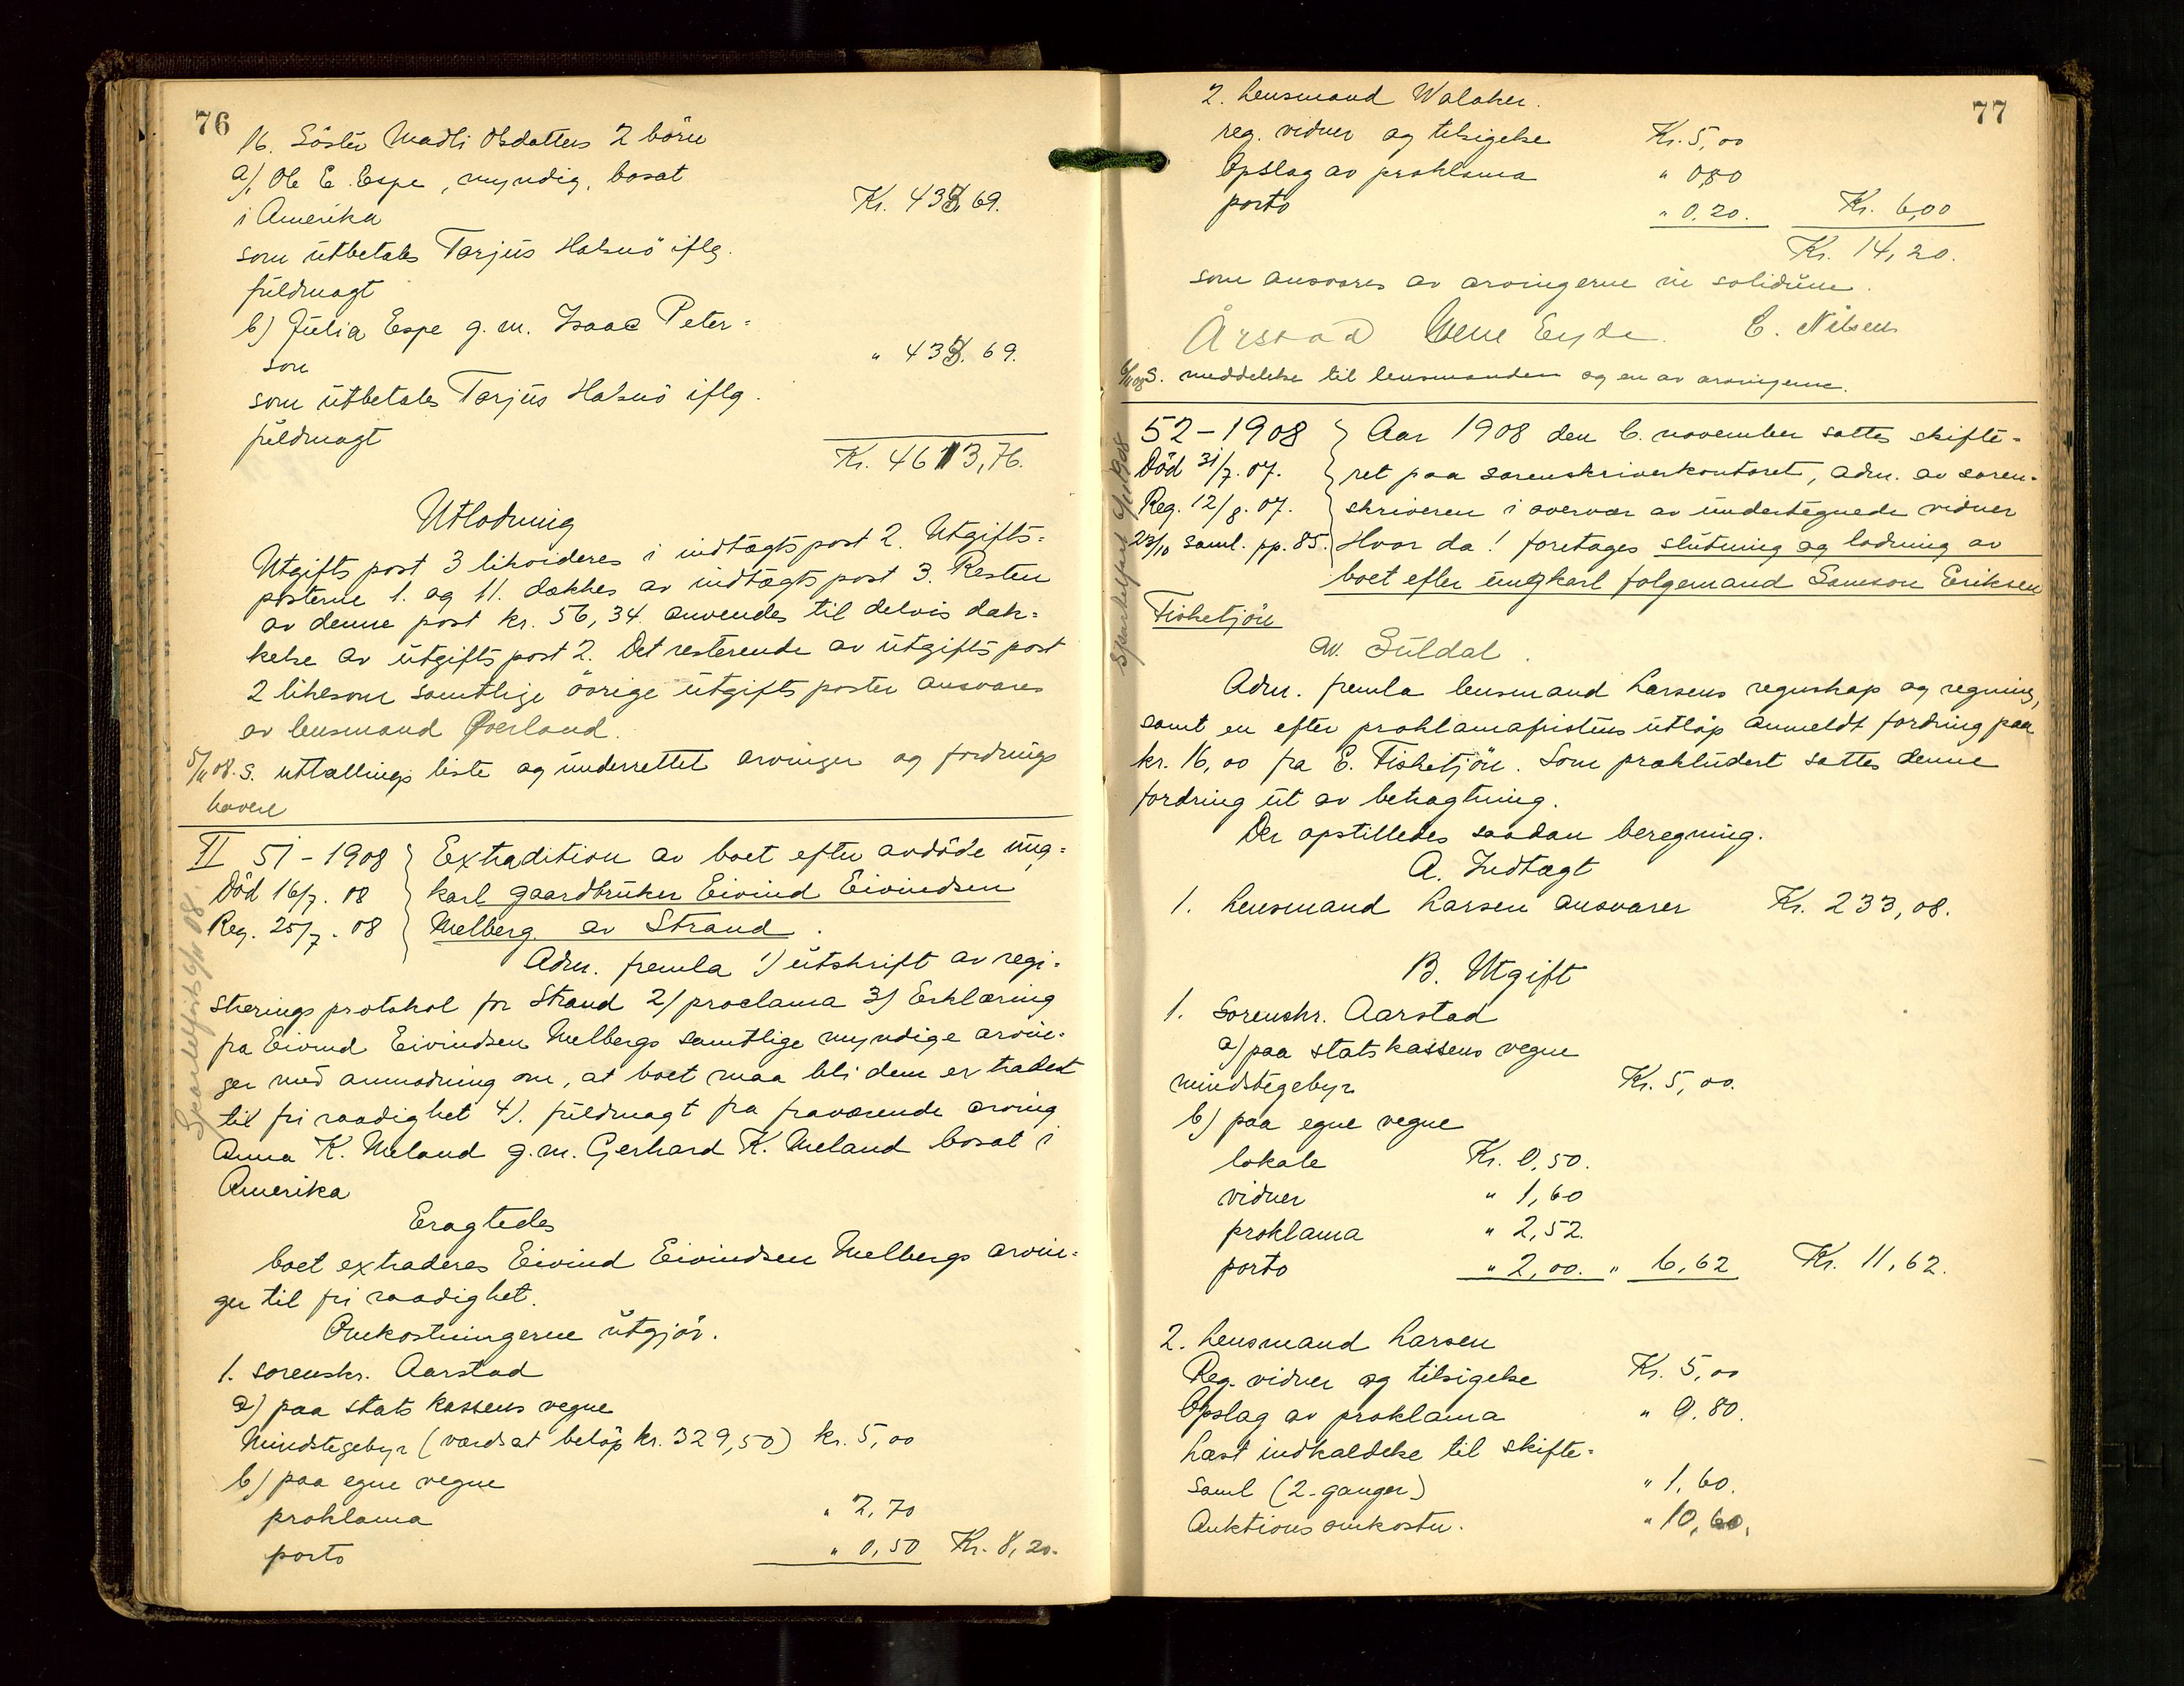 76
16. Söster Madli Olsdatters 2 börn
a) Ole E. Espe, myndig, bosat
i Amerika Kr. 438,69.
som utbetales Tarjus Halsnö iflg.
fuldmagt
b) Julia Espe g. m. Isaac Peter=
son " 438. 69.
som utbetales Tarjus Halsnö iflg.
fuldmagt
Kr. 4613,76.
Utlodning
Utgifts post 3 likvideres i indtægtspost 2. Utgifts=
posterne 1. og 11. dækkes av indtægts post 3. Resten
av denne post kr. 56,34 anvendes til delvis dæk=
kelse av utgifts post 2. Det resterende av utgifts post
2 likesom samtlige övrige utgifts poster ansvares
av lensmand Øverland.
5/11 08. S. uttællings liste og underrettet arvinger og fordrings
havere
II 51-1908
Död 16/7. 08
Reg. 25/7. 08
Sportelført 6/11 08.
Extradition av boet efter avdöde ung=
karl gaardbruker Eivind Eivindsen
Melberg av Strand.
Adm. fremla 1) utskrift av regi=
strerings protokol for Strand 2) proclama 3) Erklæring
fra Eivind Eivindsen Melbergs samtlige myndige arvin=
ger med anmodning om, at boet maa bli dem extradert
til fri raadighet 4). fuldmagt fra fraværende arving
Anna K. Meland g. m. Gerhard K. Meland bosat i
Amerika
Eragtedes
boet extraderes Eivind Eivindsen Melbergs arvin=
ger til fri raadighet.
Omkostningerne utgjör.
1. sorenskr. Aarstad
a) paa stats kassens vegne
Mindstegebyr (værdsat belöp kr. 329,50) kr. 5,00
b) paa egne vegne
proklama " 2,70
porto " 0,50 Kr. 8,20.
77
2. Lensmand Walaker.
reg. vidner og tilsigelse Kr. 5,00
Opslag av proklama " 0,80
porto " 0,20. Kr. 6,00
Kr. 14,20.
som ansvares av arvingerne in solidum.
Årstad Eyde. C. Nilsen
6/11 08 S. meddelelse til lensmanden og en av arvingerne.
52-1908
Död 31/7. 07.
Reg. 12/8. 07.
23/10 saml. pp. 85.
Sportelført 6/11 1908
Aar 1908 den 6. november sattes skifte=
ret paa sorenskriverkontoret, adm. av soren=
skriveren i overvær av undertegnede vidner
Hvor da! foretages slutning og lodning av
boet efter ungkarl folgemand Samson Eriksen
Fisketjön
av. Suldal.
Adm. fremla lensmand Larsens regnskap og regning,
samt en efter proklamafristens utløp anmeldt fordring paa
kr. 16,00 fra E. Fisketjön. Som prækludert sattes denne
fordring ut av betragtning.
Der opstilledes saadan beregning.
A. Indtægt
1. Lensmand Larsen ansvarer Kr. 233,08.
B. Utgift
1. Sorenskr. Aarstad
a) paa stats kassens vegne
mindstegebyr Kr. 5,00.
b) paa egne vegne
lokale Kr. 0,50.
vidner " 1,60
proklama " 2,52.
porto " 2,00. " 6,62 Kr. 11,62.
2. Lensmand Larsen
Reg. vidner og tilsigelse Kr. 5,00
Opslag av proklama " 0.80.
Læst indkaldelse til skifte=
saml (2-ganger) " 1,60.
Auktions omkostn. " 10,60.